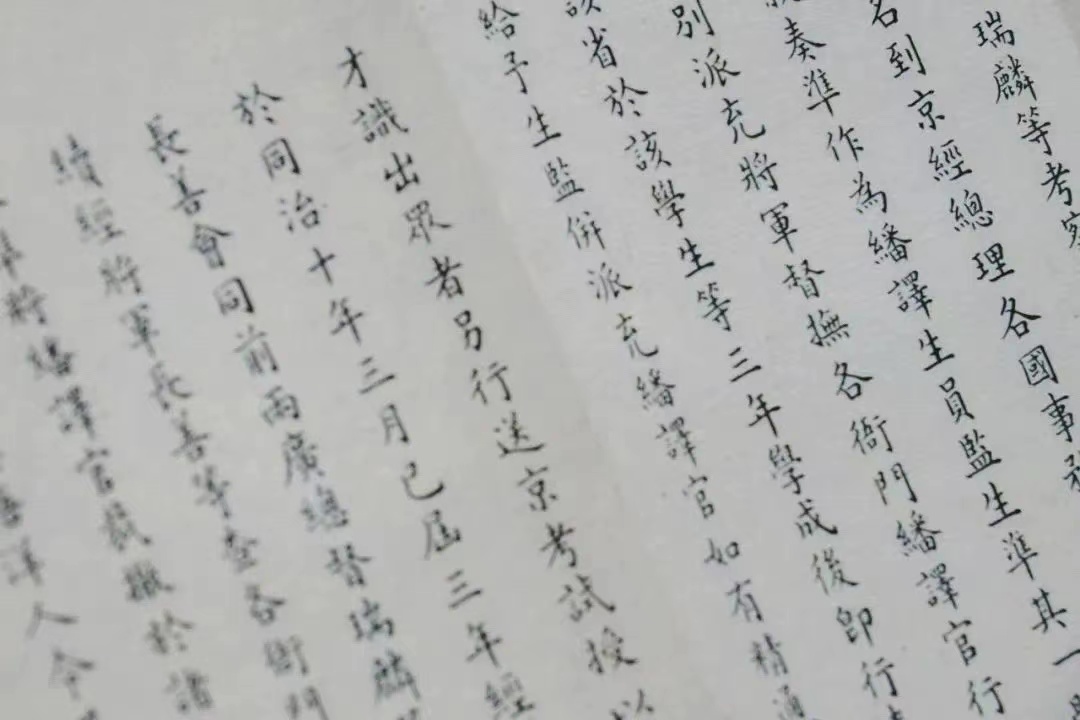 瑞麟等考察
名到京經總理各國事務
奏準作為繙譯生員監生準其一
別派充將軍督撫各衙門繙譯官行
該省於該學生等三年學成後即行
給予生監併派充繙譯官如有精通
才識出眾者另行送京考試授以
於同治十年三月已屆三年經
長善會同前兩廣總督瑞麟
續經將軍長善等查各衙門
將繙譯官裁撤於諸
洋人令